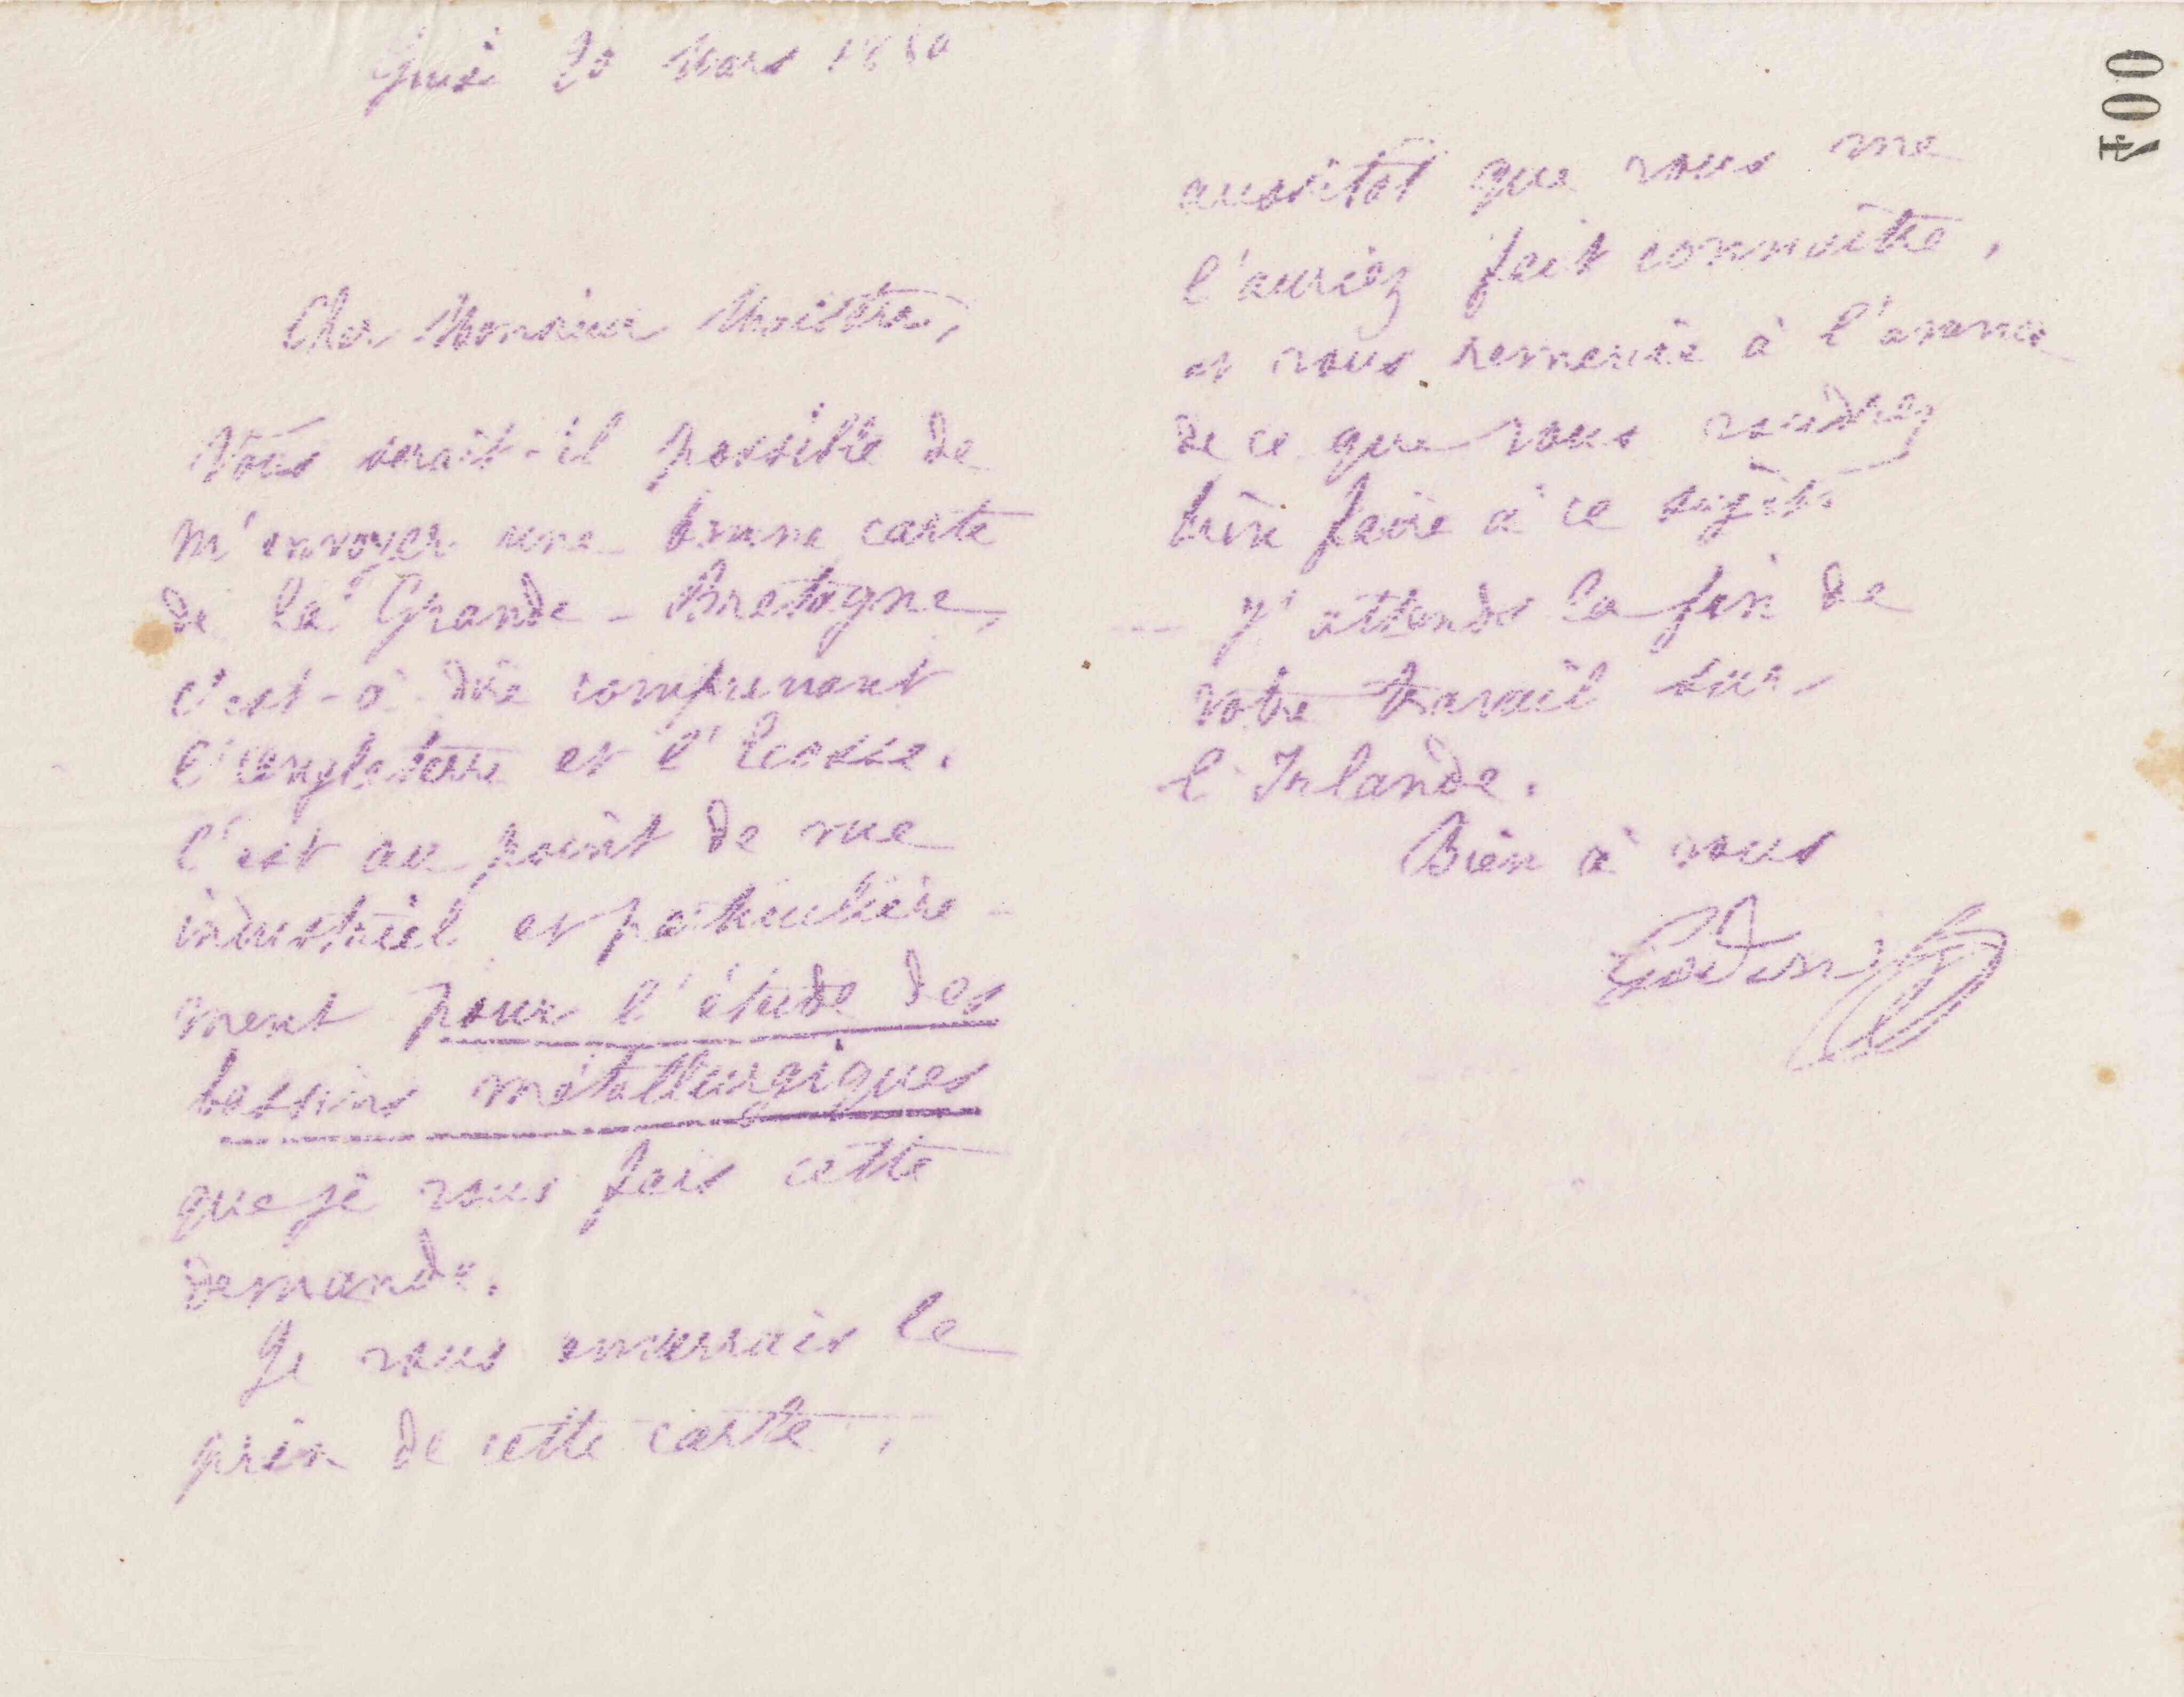 Guise 20 Mars 1880
Cher Monsieur Maistre,
Vous serait-il possible de
m'envoyer une bonne carte
de la Grande-Bretagne,
c'est-à-dire comprenant
l'Angleterre et l'Ecosse.
C'est au point de vue
industriel et particulière-
ment pour l'étude des
bassins métallurgiques
que je vous fais cette
demande.
Je vous enverrais le
prix de cette carte,
aussitôt que vous me
l'auriez fait connaître,
et vous remercie à l'avance
de ce que vous voudrez
bien faire à ce sujet.
J'attends la fin de
votre travail sur
l'Irlande.
Bien à vous
Godin
400